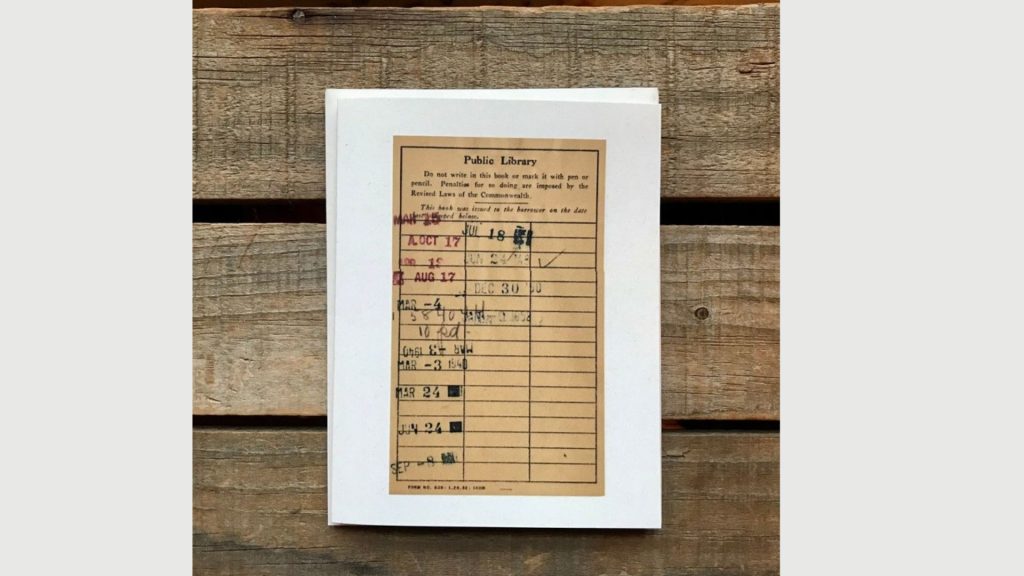 Public Library
Do not write in this book or mark it with pen or
pencil. Penalties for so doing are imposed by the
Revised Laws of the Commonwealth.
This book was issued to the borrower on the date
below.
MAR
JUL 18
A. OCT 17
JUN 24
18
AUG 17
DEC 30
MAR -4
10 pd
MAR -3 1940
MAR -3 1940
MAR 24
JUN 24
SEP -8
FORM NO.